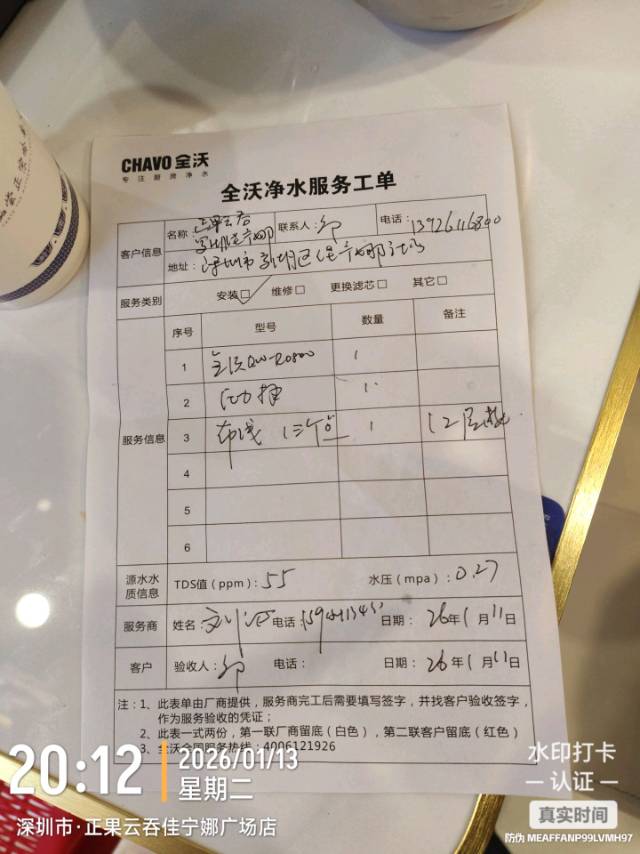 CHAVO 全沃
专注厨房净水
全沃净水服务工单
客户信息
名称：正果云吞
联系人：邹
电话：13926116800
地址：深圳市
服务类别
安装☑ 维修□ 更换滤芯□ 其它□
服务信息
序号 型号 数量 备注
1 1
2 1
3 布线 1
4
5
6
源水水质信息
TDS值（ppm）：55 水压（mpa）：0.27
服务商 姓名： 电话： 日期：26年1月11日
客户 验收人：邹 电话： 日期：26年1月11日
注：1、此表单由厂商提供，服务商完工后需要填写签字，并找客户验收签字，
作为服务验收的凭证；
2、此表一式两份，第一联厂商留底（白色），第二联客户留底（红色）
3、全沃全国服务热线：4006121926
20:12
2026/01/13
星期二
深圳市·正果云吞佳宁娜广场店
水印打卡
认证
真实时间
防伪 MEAFFANP99LVMH97